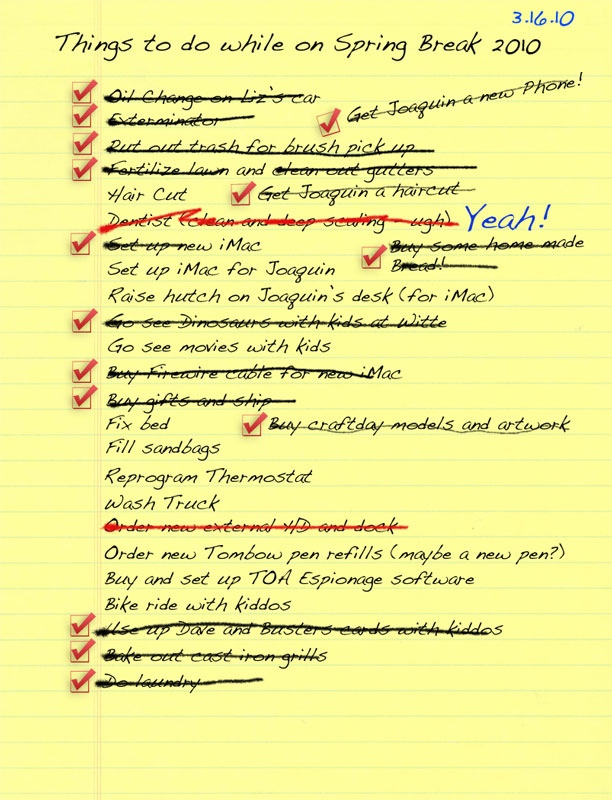 3.16.10
Things to do while on Spring Break 2010
Oil Change on Liz's car
Get Joaquin a new Phone!
Exterminator
Put out trash for brush pick up
Fertilize lawn and clean out gutters
Hair Cut
Get Joaquin a haircut
Dentist (clean and deep scaling - ugh)
Yeah!
Set up new iMac
Buy some home made
Bread!
Set up iMac for Joaquin
Raise hutch on Joaquin's desk (for iMac)
Go see Dinosaurs with kids at Witte
Go see movies with kids
Buy Firewire cable for new iMac
Buy gifts and ship
Fix bed
Buy craftday models and artwork
Fill sandbags
Reprogram Thermostat
Wash Truck
Order new external H/D and dock
Order new Tombow pen refills (maybe a new pen?)
Buy and set up TOA Espionage software
Bike ride with kiddos
Use up Dave and Busters cards with kiddos
Bake out cast iron grills
Do laundry